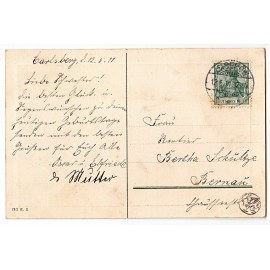 Carlsberg, d. 12.5.11
Liebe Schwester!
Die besten Glück- u.
Segenswünsche zu deinem
heutigen Geburtstage
sendet mit den besten
Grüßen für Euch Alle
und Elfriede
& Mutter
Frau
Rentier
Bertha Schultze
Bernau